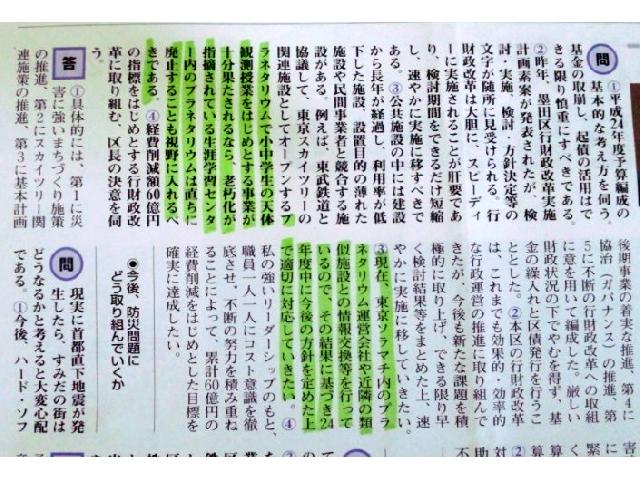 問 ①平成24年度予算編成の
基本的な考え方を伺う。
基金の取崩し、起債の活用はで
きる限り慎重にすべきである。
②昨年、墨田区行財政改革実施
計画素案が発表されたが、検
討・実施、検討、方針決定等の
文字が随所に見受けられる。行
財政改革は大胆に、スピーディ
ーに実施されることが肝要であ
り、検討期間をできるだけ短縮
し、速やかに実施に移すべきで
ある。③公共施設の中には建設
から長年が経過し、利用率が低
下した施設、設置目的の薄れた
施設や民間事業者と競合する施
設がある。例えば、東武鉄道と
協議して、東京スカイツリーの
関連施設としてオープンするプ
ラネタリウムで小中学生の天体
観測授業をはじめとする事業が
十分果たされるなら、老朽化が
指摘されている生涯学習センタ
ー内のプラネタリウムは直ちに
廃止することも視野に入れるべ
きである。④経費削減額60億円
の指標をはじめとする行財政改
革に取り組む、区長の決意を伺
う。
答 ①具体的には、第1に災
害に強いまちづくり施策
の推進、第2にスカイツリー関
連施策の推進、第3に基本計画
後期事業の着実な推進、第4に
協治（ガバナンス）の推進、第
5に不断の行財政改革への取組
に意を用いて編成した。厳しい
財政状況の下でやむを得ず、基
金の繰入れと区債発行を行うこ
ととした。②本区の行財政改革
は、これまでも効果的・効率的
な行政運営の推進に取り組んで
きたが、今後も新たな課題を積
極的に取り上げ、できる限り早
く検討結果等をまとめた上、速
やかに実施に移していきたい。
③現在、東京ソラマチ内のプラ
ネタリウム運営会社や近隣の類
似施設との情報交換等を行って
いるので、その結果に基づき24
年度中に今後の方針を定めた上
で適切に対応していきたい。④
私の強いリーダーシップのもと、
職員一人一人にコスト意識を徹
底させ、不断の努力を積み重ね
ることによって、累計60億円の
経費削減をはじめとした目標を
確実に達成する。
●今後、防災問題に
どう取り組んでいくか
問 現実に首都直下地震が発
生したら、すみだの街は
どうなるかと考えると大変心配
である。①今後、ハード・ソフ